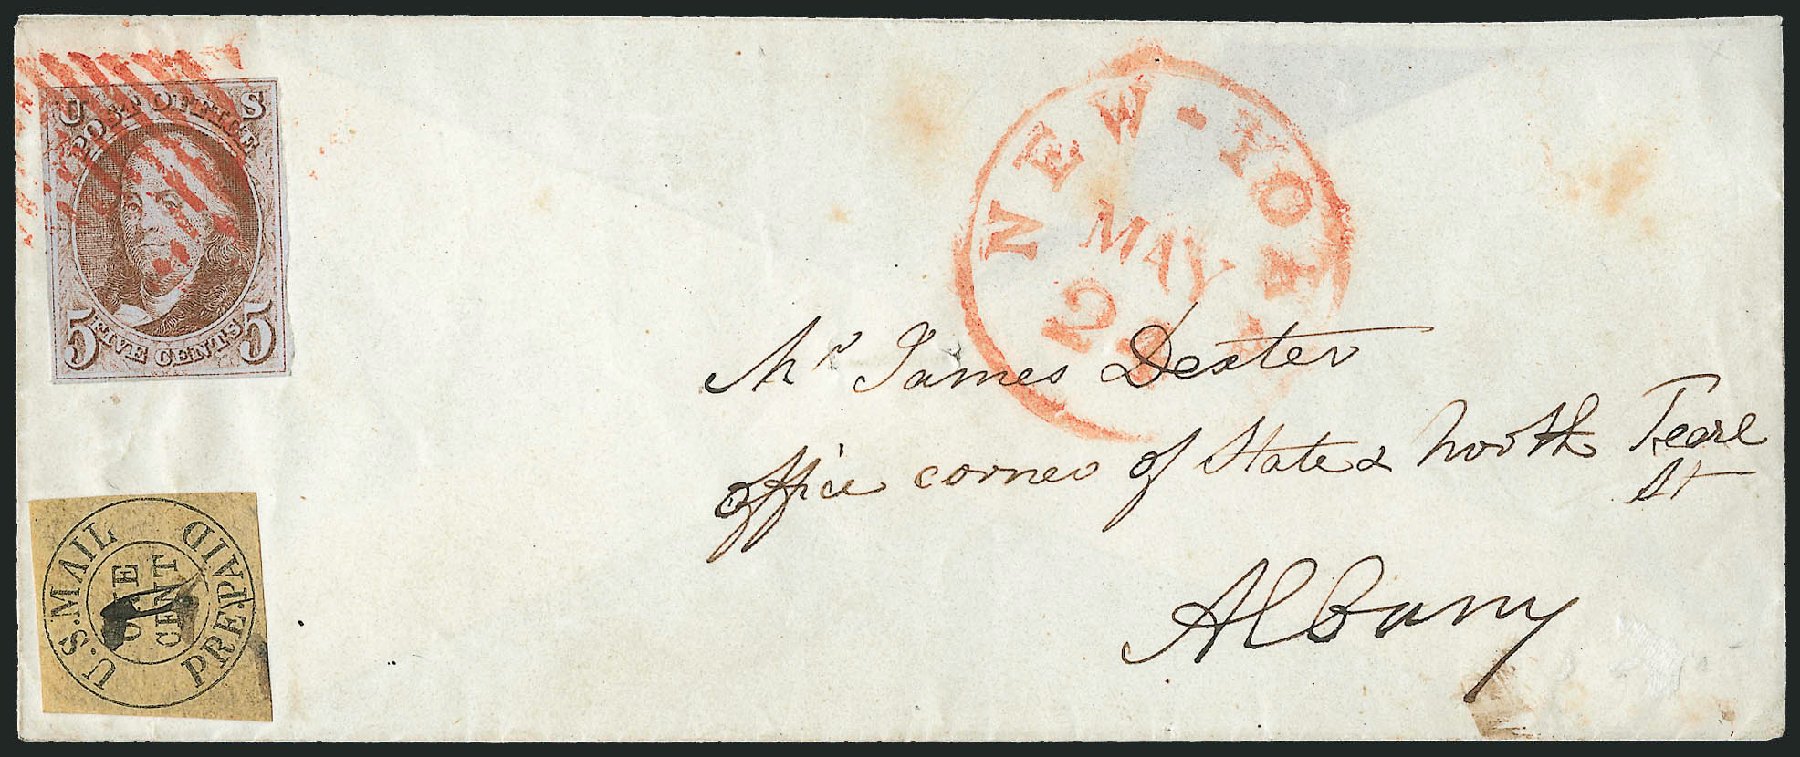 U S
POST OFFICE
5 FIVE CENTS 5
NEW-YORK
MAY
Mr James Dexter
office corner of State & North Pearl
St
Albany
U.S. MAIL PREPAID
ONE
CENT